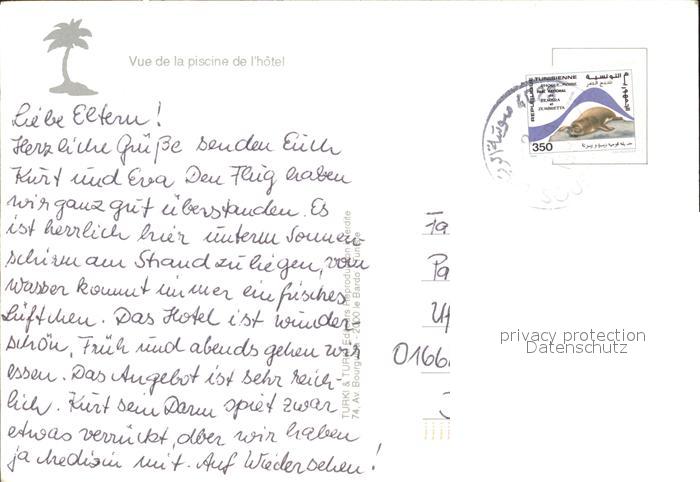 Vue de la piscine de l'hôtel
Liebe Eltern!
Herzliche Grüße senden Euch
Kurt und Eva Den Flug haben
wir ganz gut überstanden. Es
ist herrlich hier unterm Sonnen-
schirm am Strand zu liegen, vom
wasser kommt immer ein frisches
Lüftchen. Das Hotel ist wunder-
schön, Früh und abends gehen wir
essen. Das Angebot ist sehr reich-
lich. Kurt sein Darm spielt zwar
etwas verrückt, aber wir haben
ja Medizin mit. Auf Wiedersehen!
TURKI & TURKI Editeurs Reproduction interdite
74, Av. Bourguiba - 2000 le Bardo Tunisie
REPUBLIQUE TUNISIENNE
PARC NATIONAL
ZEMBRA
et
ZEMBRETTA
350
Fa
Pa
0166
privacy protection
Datenschutz